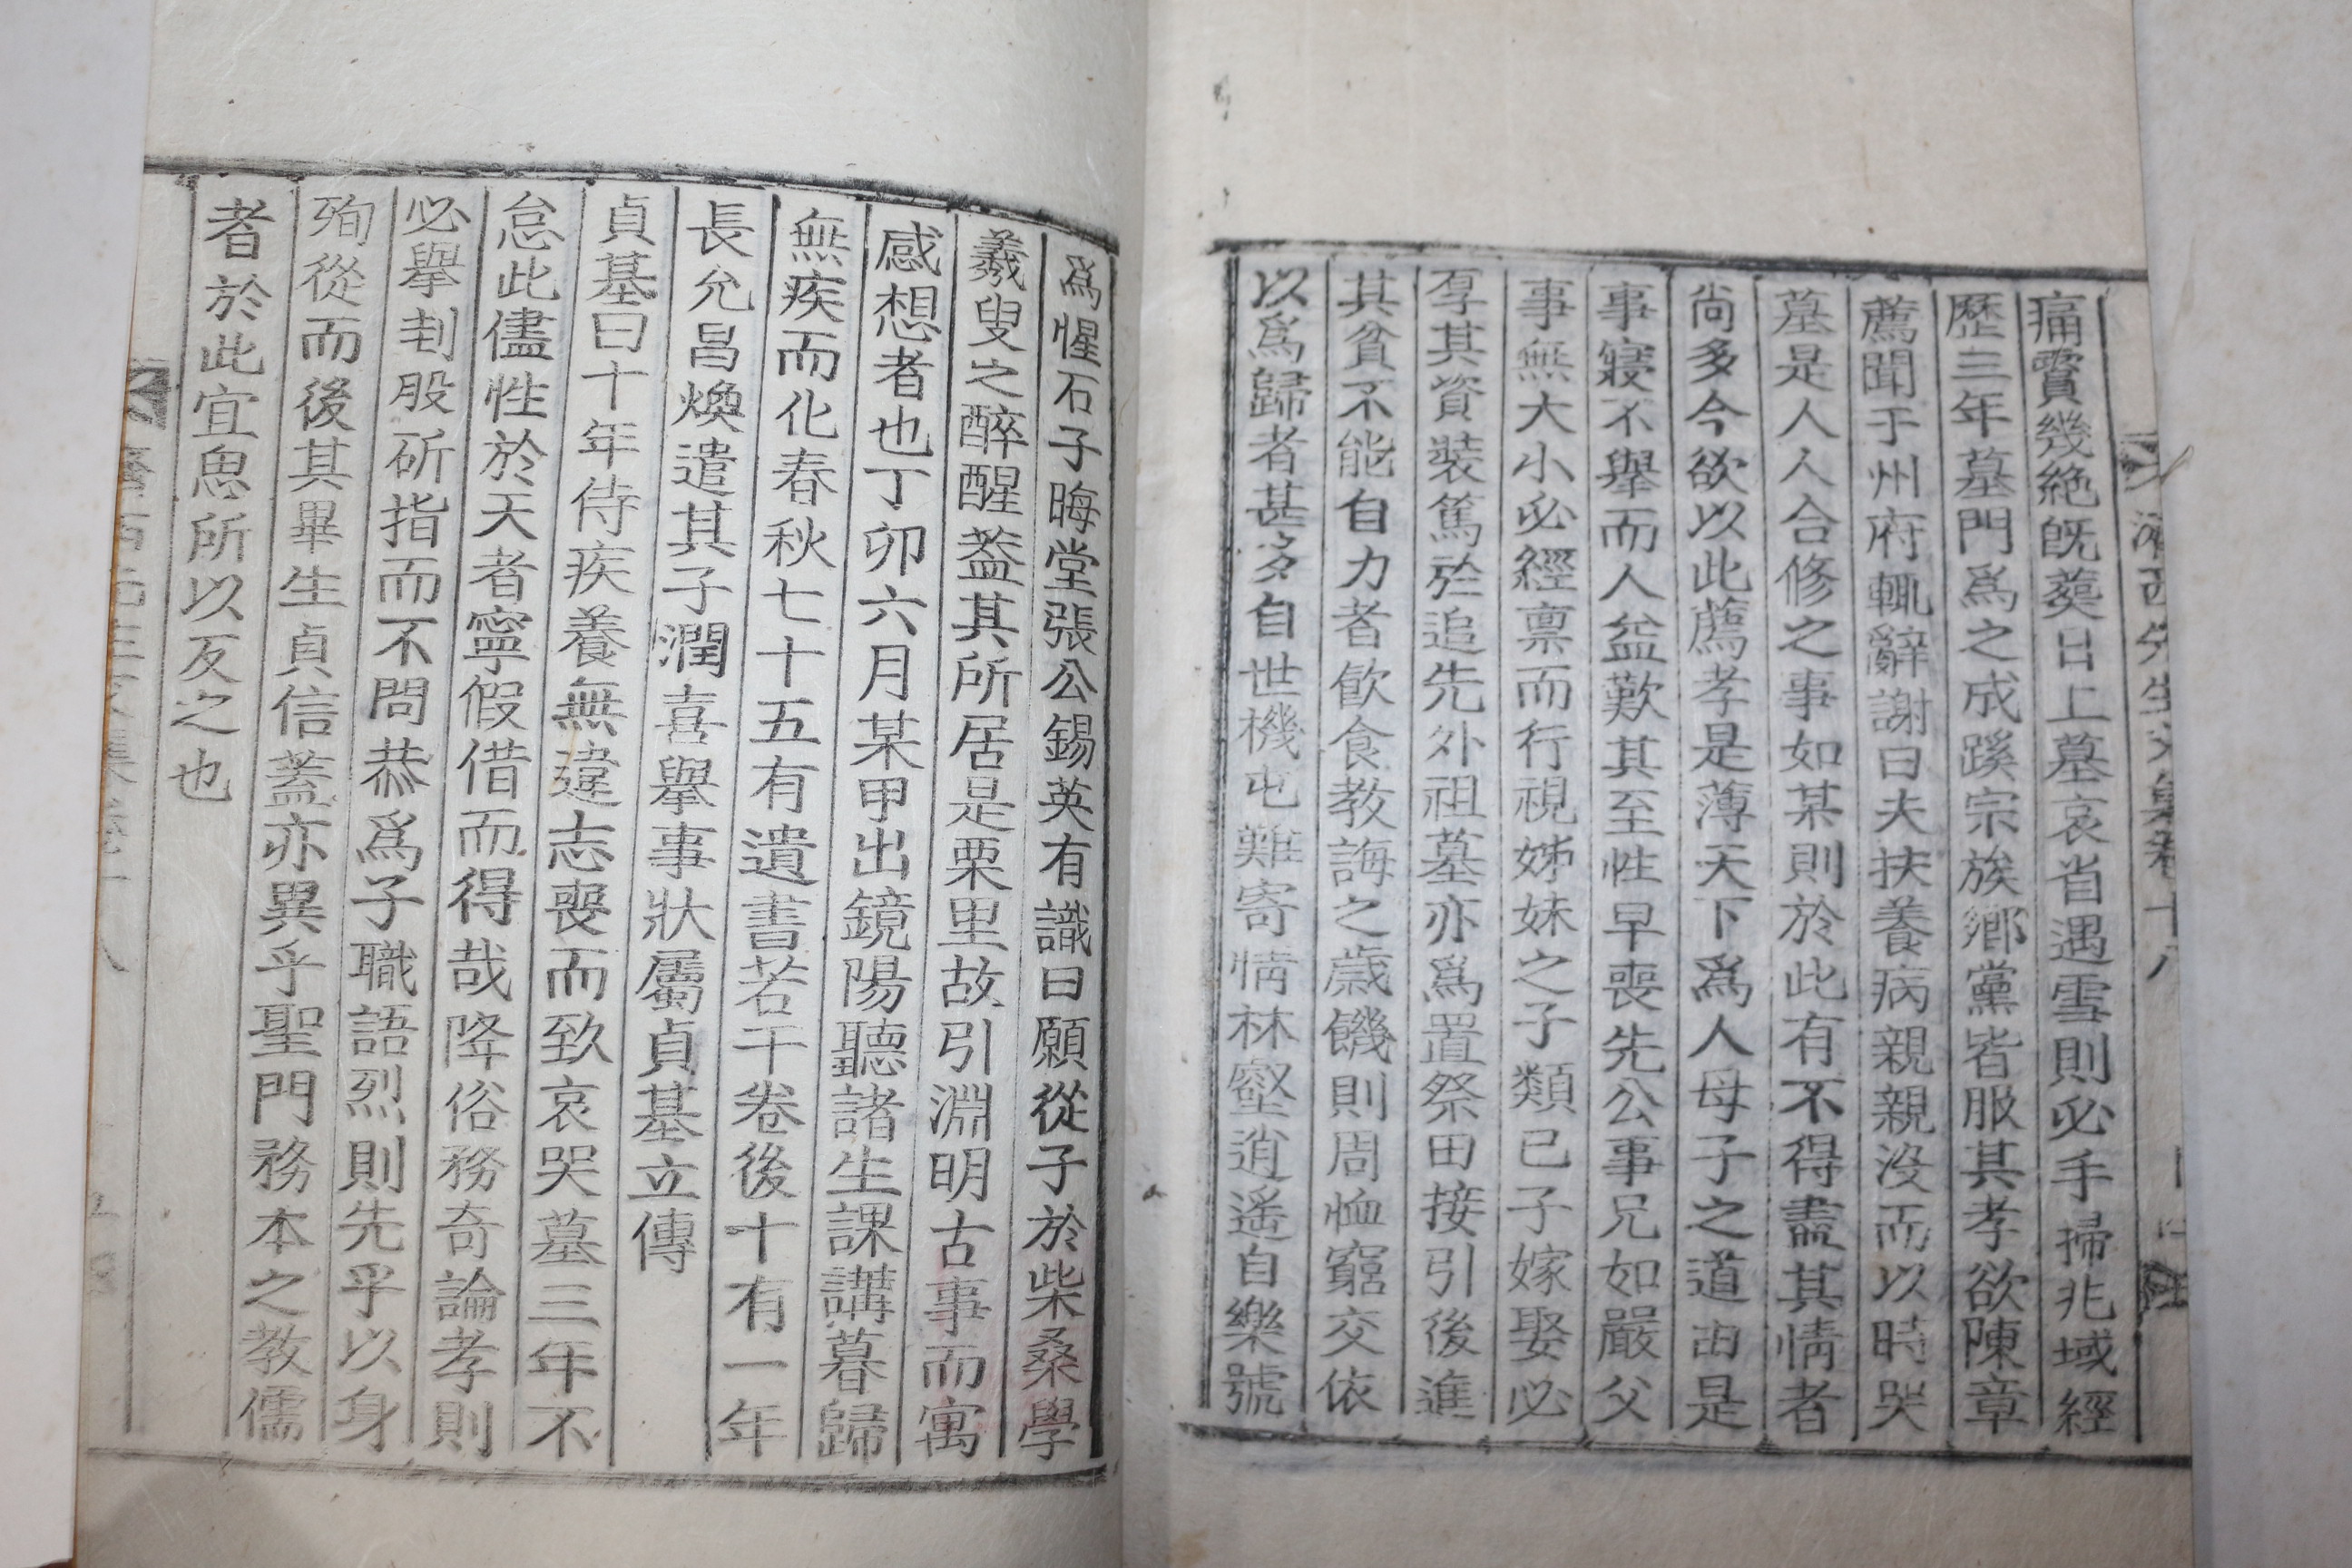 痛霣幾絶旣葬日上墓哀省遇雪則必手掃兆域經
歷三年墓門爲之成蹊宗族鄉黨皆服其孝欲陳章
薦聞于州府輒辭謝曰夫扶養病親親沒而以時哭
墓是人人合修之事如某則於此有不得盡其情者
尙多今欲以此薦孝是薄天下爲人母子之道由是
事寢不擧而人益歎其至性早喪先公事兄如嚴父
事無大小必經禀而行視姊妹之子類已子嫁娶必
厚其資裝篤於追先外祖墓亦爲置祭田接引後進
其貧不能自力者飮食敎誨之歲饑則周恤窮交依
以爲歸者甚多自世機屯難寄情林壑逍遙自樂號
爲惺石子晦堂張公錫英有識曰願從子於柴桑學
羲叟之醉醒盖其所居是栗里故引淵明古事而寓
感想者也丁卯六月某甲出鏡陽聽諸生課講暮歸
無疾而化春秋七十五有遺書若干卷後十有一年
長允昌煥遣其子潤喜擧事狀屬貞基立傳
貞基曰十年侍疾養無違志喪而致哀哭墓三年不
怠此儘性於天者寧假借而得哉降俗務奇論孝則
必擧刲股斫指而不問恭爲子職語烈則先乎以身
殉從而後其畢生貞信蓋亦異乎聖門務本之敎儒
者於此宜思所以反之也